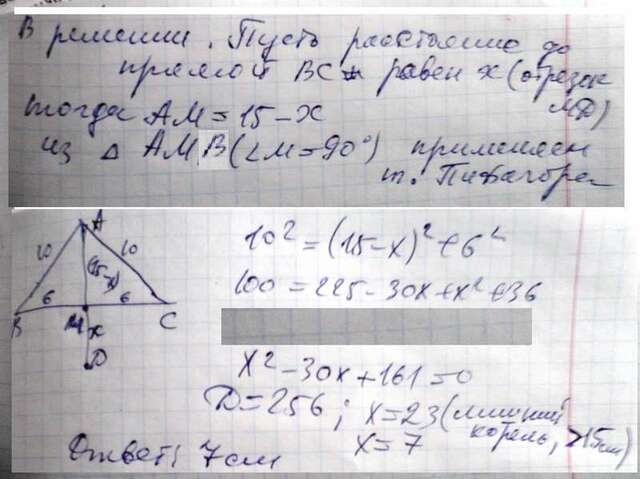 В решении. Пусть расстояние до
прямой BC равен x (отрезок
MD)
тогда AM = 15 - x
из △ AMB (∠M = 90°) применяем
т. Пифагора
A
10
10
(15-x)
6
6
B
M
C
x
D
10² = (15-x)² + 6²
100 = 225 - 30x + x² + 36
x² - 30x + 161 = 0
D = 256; x = 23 (лишний
корень, >15см)
x = 7
Ответ: 7 см